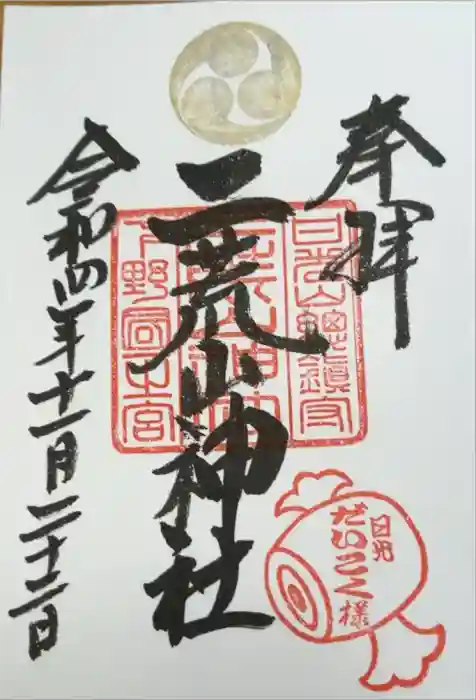 奉拝
日光山總鎮守
二荒山神社
下野國一宮
令和四年十一月二十二日
日光
だいこく様